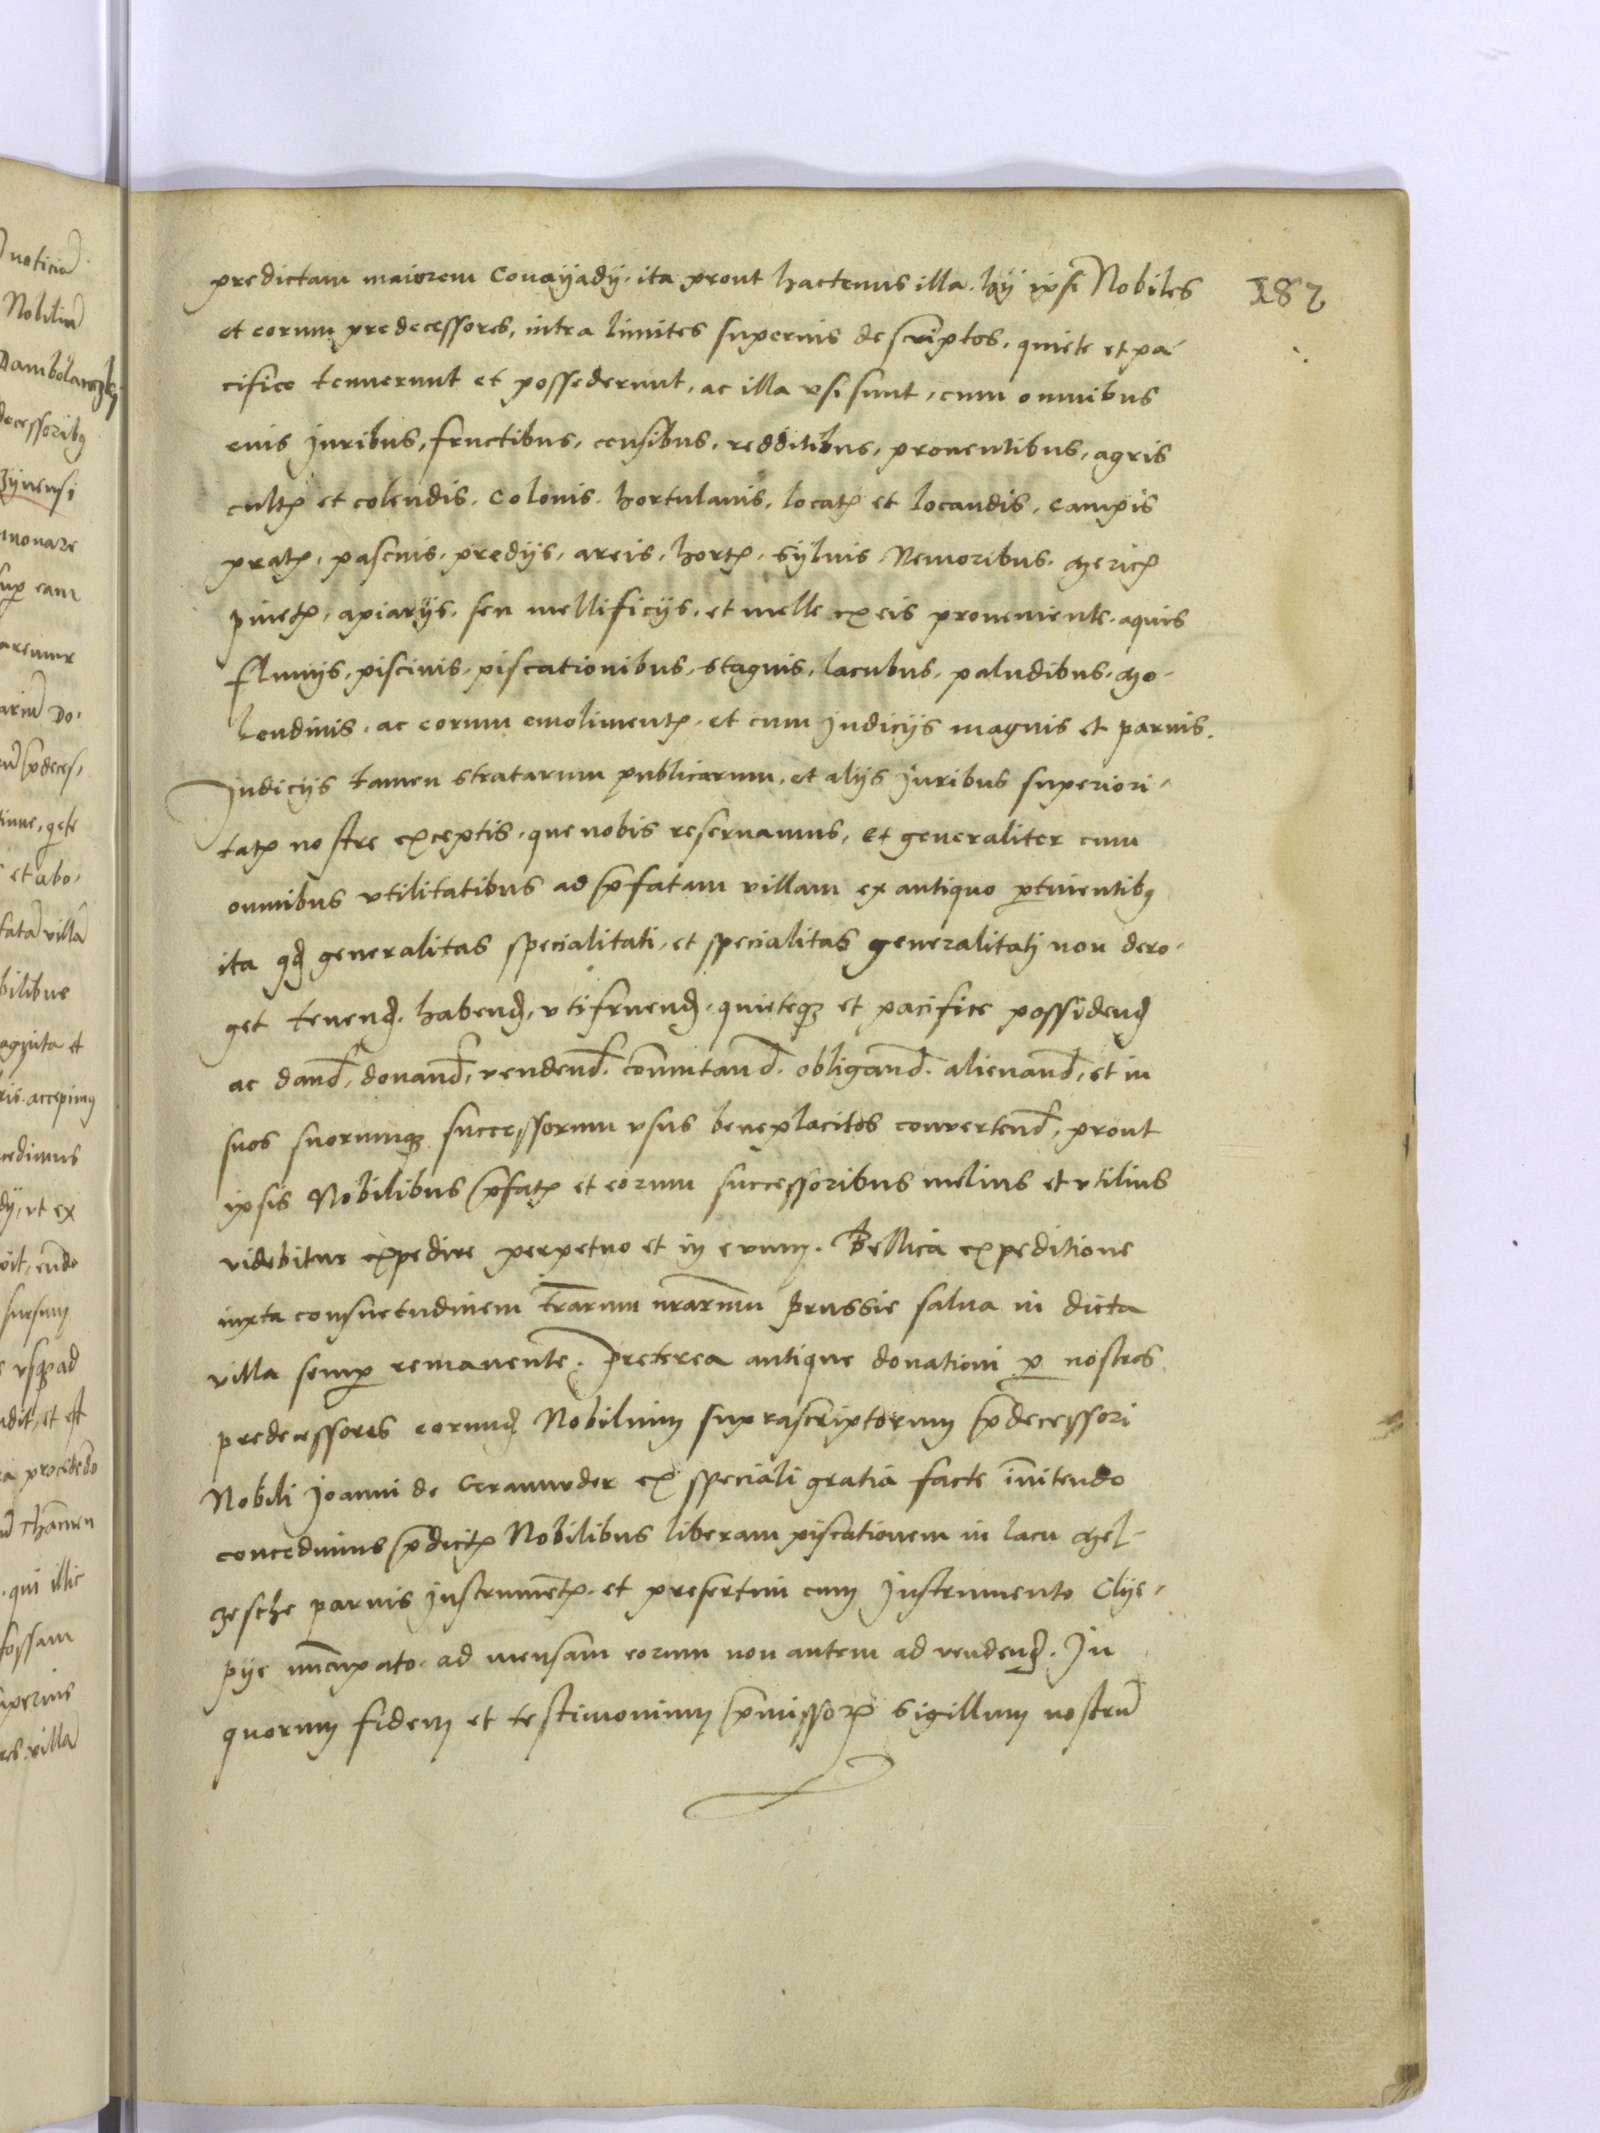 predictam maiorem Conayady, ita prout hactenus illa hy ipsi Nobiles
182
et eorum predecessores, intra limites superius descriptos, quiete et pa-
cifice tenuerunt et possederunt, ac illa vsi sunt, cum omnibus
euis Juribus, fructibus, censibus, redditibus, prouentibus, agris
cultꝭ et colendis, Colonis, hortulanis, locatꝭ et locandis, campis
pratꝭ, pascuis, predijs, areis, hortꝭ, Syluis Nemoribus, Mericꝭ
pinetꝭ, apiarijs, seu mellificijs, et melle ex eis proueniente, aquis
fluuijs, piscinis, piscationibus, stagnis, lacubus, paludibus, Mo-
lendinis, ac eorum emolimentꝭ, et cum Judicijs magnis et paruis.
Judicijs tamen stratarum publicarum, et alijs Juribus superiori-
tatꝭ nostre exceptis, que nobis reseruamus, et generaliter cum
omnibus vtilitatibus ad p̄fatam villam ex antiquo ꝑtinentibꝰ
ita qđ generalitas specialitati, et specialitas generalitati non dero-
get tenend̄. habend̄, vtifruend̄, quieteqꝫ et pacifice possidend̄
ac dand̄, donand̄, vendend̄. com̄utand̄. obligand̄. alienand̄, et in
suos suorumqꝫ successorum vsus beneplacitos conuertend̄, prout
ipsis Nobilibus p̄fatꝭ et eorum successoribus melius et vtilius
videbitur expedire perpetuo et in euum. Bellica expeditione
iuxta consuetudinem tr̄arum nr̄arum Prussie salua in dicta
villa semꝑ remanente. Preterea antique donationi ꝑ nostros
predecessores eorund̄ Nobilium suprascriptorum p̄decessori
Nobili Joanni de ex speciali gratia facte in̄itendo
concedimus p̄dictꝭ Nobilibus liberam piscationem in lacu Mel-
zesche paruis Instrumentꝭ. et presertim cum Instrumento Clye-
pye nuncupato. ad mensam eorum non autem ad vendend̄. In
quorum fidem et testimonium p̄missorꝭ Sigillum nostrū